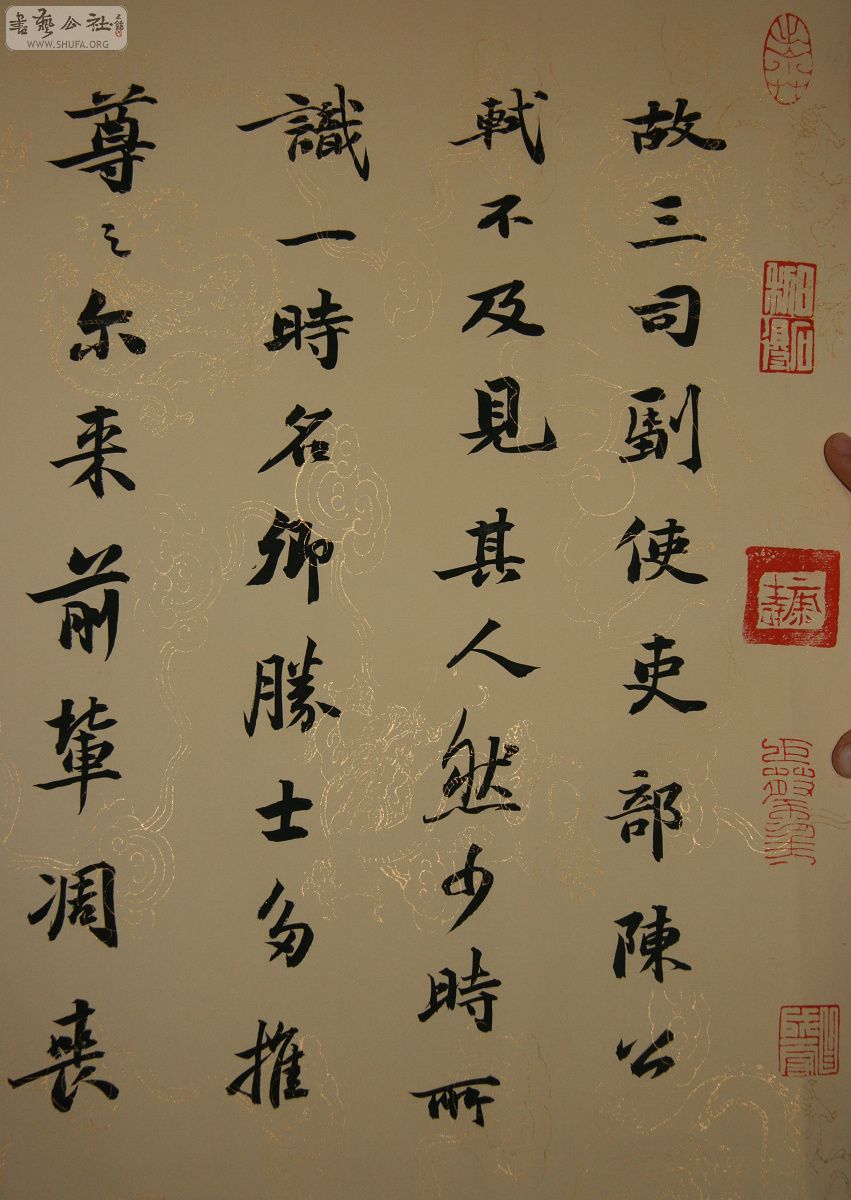 書藝公社
WWW.SHUFA.ORG
故三司副使吏部陳公
軾不及見其人然少時所
識一時名卿勝士多推
尊之尔来前輩凋喪